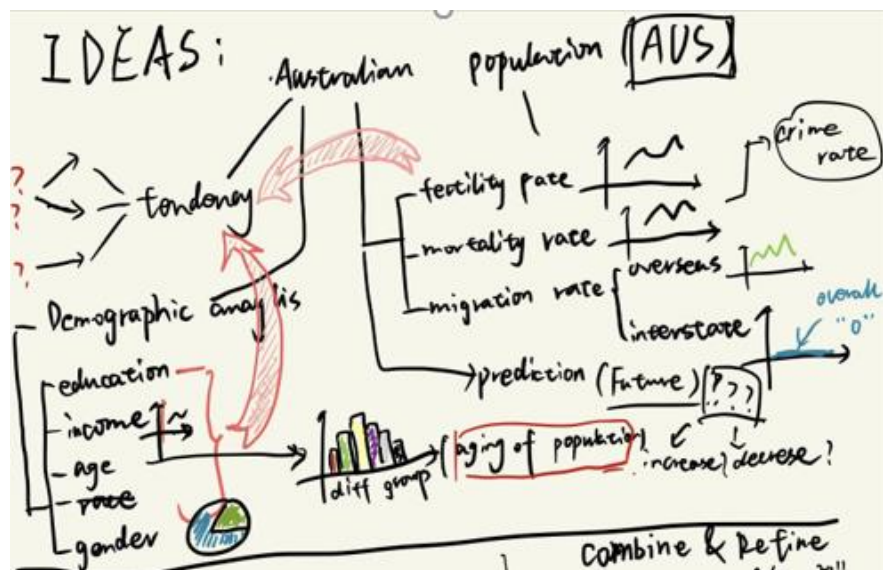 IDEAS:
Australian population (AUS)
crime
rate
?
?
?
tendency
fertility rate
mortality rate
migration rate
overseas
interstate
overall
"0"
Demographic analysis
education
income
age
race
gender
diff group
(aging of population)
prediction (Future) ???
increase? decrese?
Combine & Refine